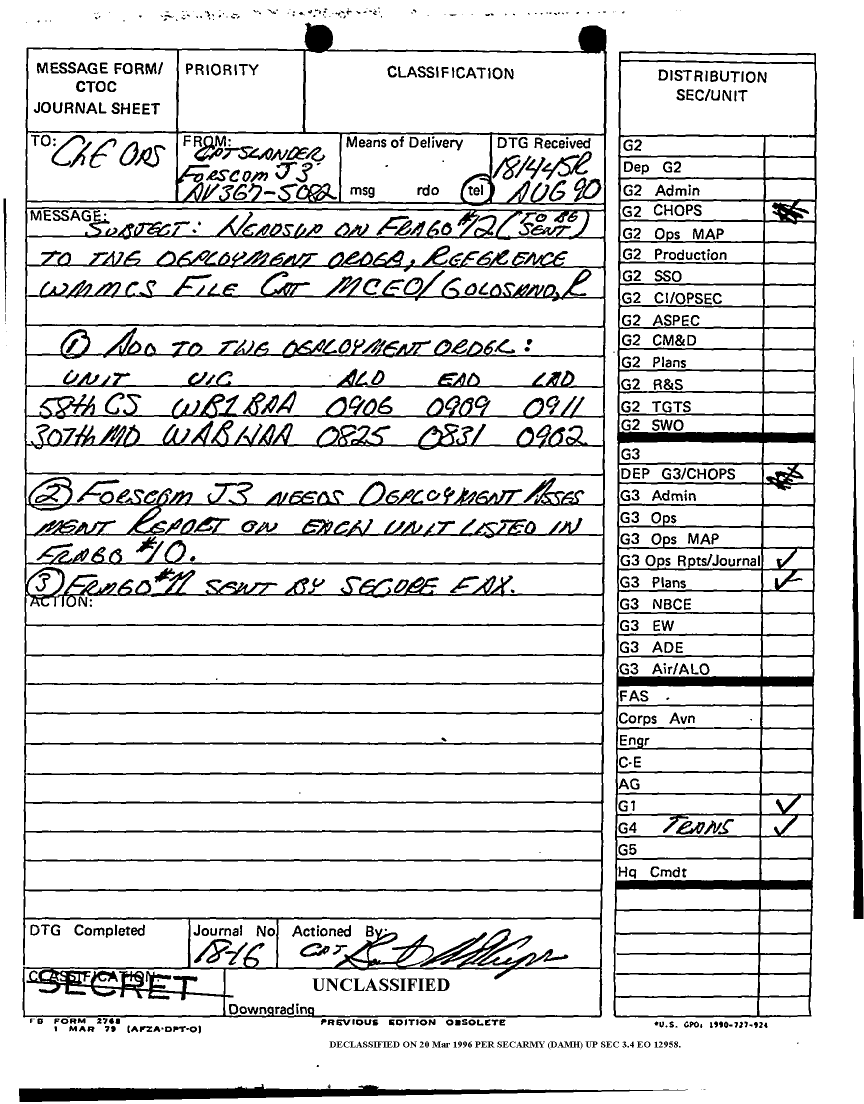 MESSAGE FORM/
CTOC
JOURNAL SHEET
PRIORITY
CLASSIFICATION
TO: Ch E OPS
FROM:
CPT SLANDER
FORSCOM J3
AV 367-5082
Means of Delivery
msg rdo tel
DTG Received
181445R
AUG 90
MESSAGE:
SUBJECT: HEADSUP ON FRAGO #12 (TO BE SENT)
TO THE DEPLOYMENT ORDER, REFERENCE
WMMCS FILE CAT MCEO/GOLDSAND,R
① ADD TO THE DEPLOYMENT ORDER:
UNIT UIC ALD EAD LAD
58th CS WB1BAA 0906 0909 0911
307th MD WABWAA 0825 0831 0902
② FORSCOM J3 NEEDS DEPLOYMENT ASSES
MENT REPORT ON EACH UNIT LISTED IN
FRAGO #10.
③ FRAGO #11 SENT BY SECURE FAX.
ACTION:
DTG Completed
Journal No
18-16
Actioned By:
CPT
CLASSIFICATION:
SECRET
UNCLASSIFIED
Downgrading
FB FORM 2768
1 MAR 79 (AFZA-DPT-O)
PREVIOUS EDITION OBSOLETE
DISTRIBUTION
SEC/UNIT
G2
Dep G2
G2 Admin
G2 CHOPS
G2 Ops MAP
G2 Production
G2 SSO
G2 CI/OPSEC
G2 ASPEC
G2 CM&D
G2 Plans
G2 R&S
G2 TGTS
G2 SWO
G3
DEP G3/CHOPS
G3 Admin
G3 Ops
G3 Ops MAP
G3 Ops Rpts/Journal ✓
G3 Plans ✓
G3 NBCE
G3 EW
G3 ADE
G3 Air/ALO
FAS
Corps Avn
Engr
C-E
AG
G1 ✓
G4 TRANS ✓
G5
Hq Cmdt
*U.S. GPO: 1990-727-924
DECLASSIFIED ON 20 Mar 1996 PER SECARMY (DAMH) UP SEC 3.4 EO 12958.